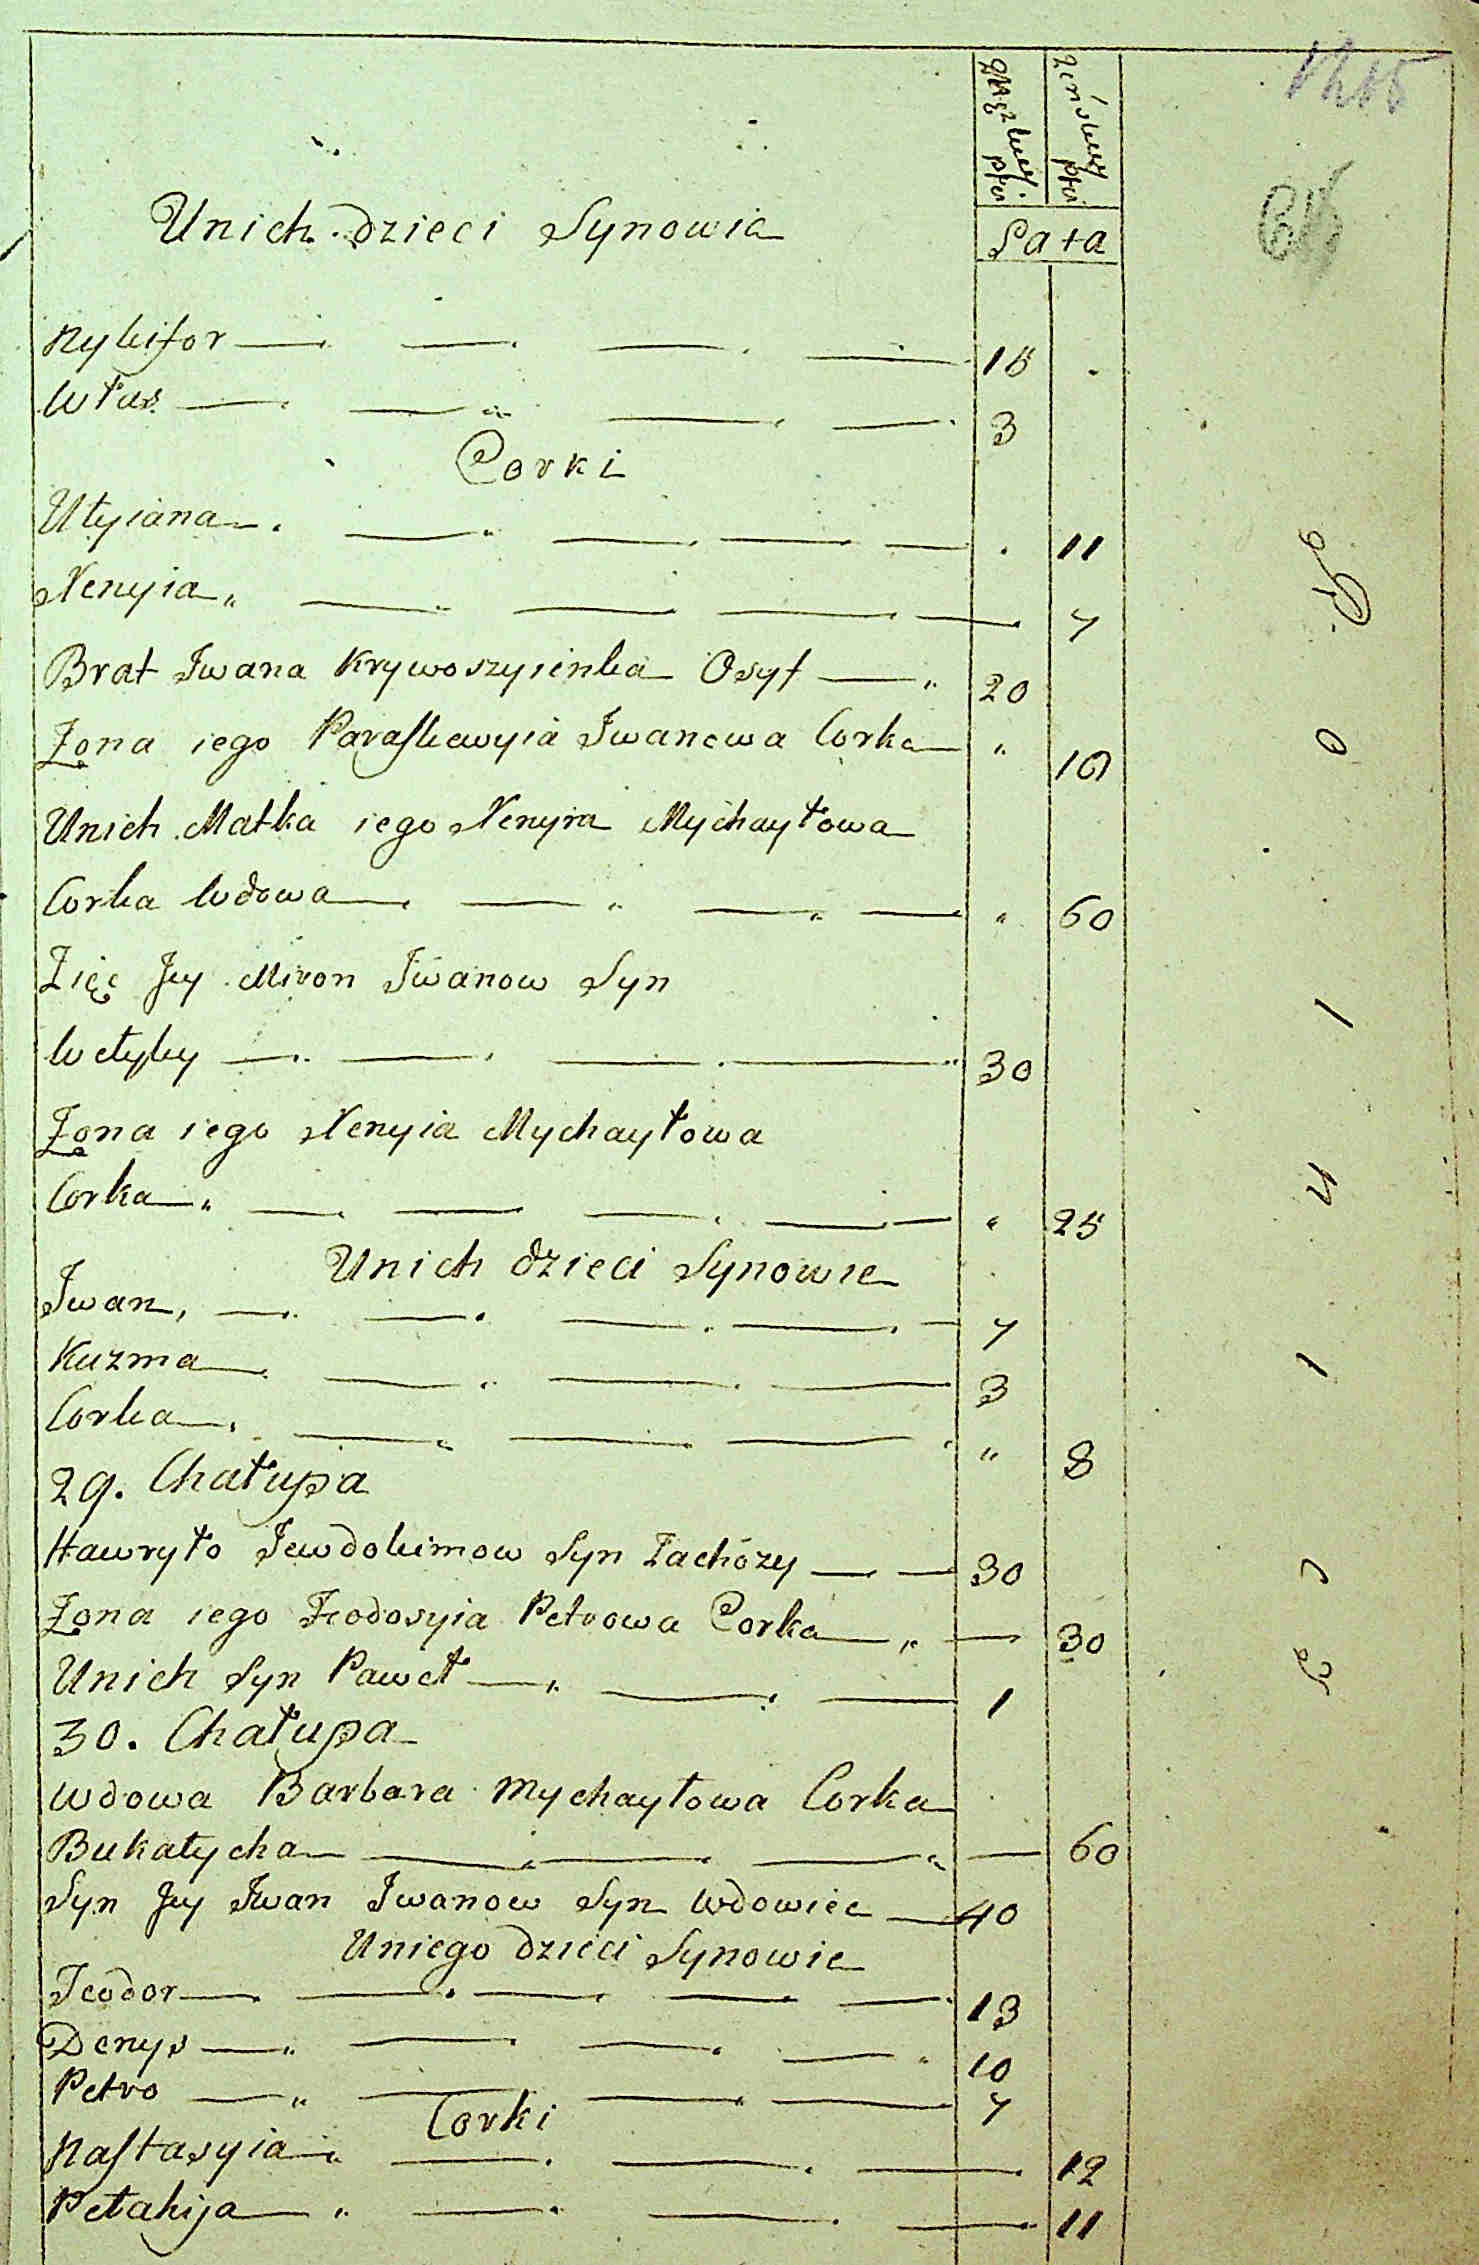 Męzkiey płci
Zeńskiey płci
Unich dzieci Synowie
Lata
Nykifor 15
Włas 3
Corki
Ulyiana 11
Xenyia 7
Brat Jwana Krywoszyienka Osyf 20
Żona iego Paraskewyia Jwanowa Corka
Unich Matka iego Xenyia Mychayłowa
Corka Wdowa 60
Zięć Jey Miron Jwanow Syn
30
Żona iego Xenyia Mychayłowa
Corka 25
Unich dzieci Synowie
Jwan 7
Kuzma 3
Corka 8
29. Chałupa
Hawryło Jewdokimow Syn Zachoży 30
Żona iego Feodosyia Petrowa Corka 30
Unich Syn Paweł 1
30. Chałupa
Wdowa Barbara Mychayłowa Corka
Bukatycha 60
Syn Jey Jwan Jwanow Syn Wdowiec 40
Uniego dzieci Synowie
Feodor 13
Denys 10
Petro 7
Corki
Nastasyia 12
Pełahija 11